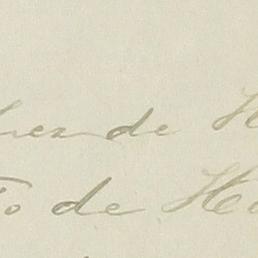 hez de H
to de He